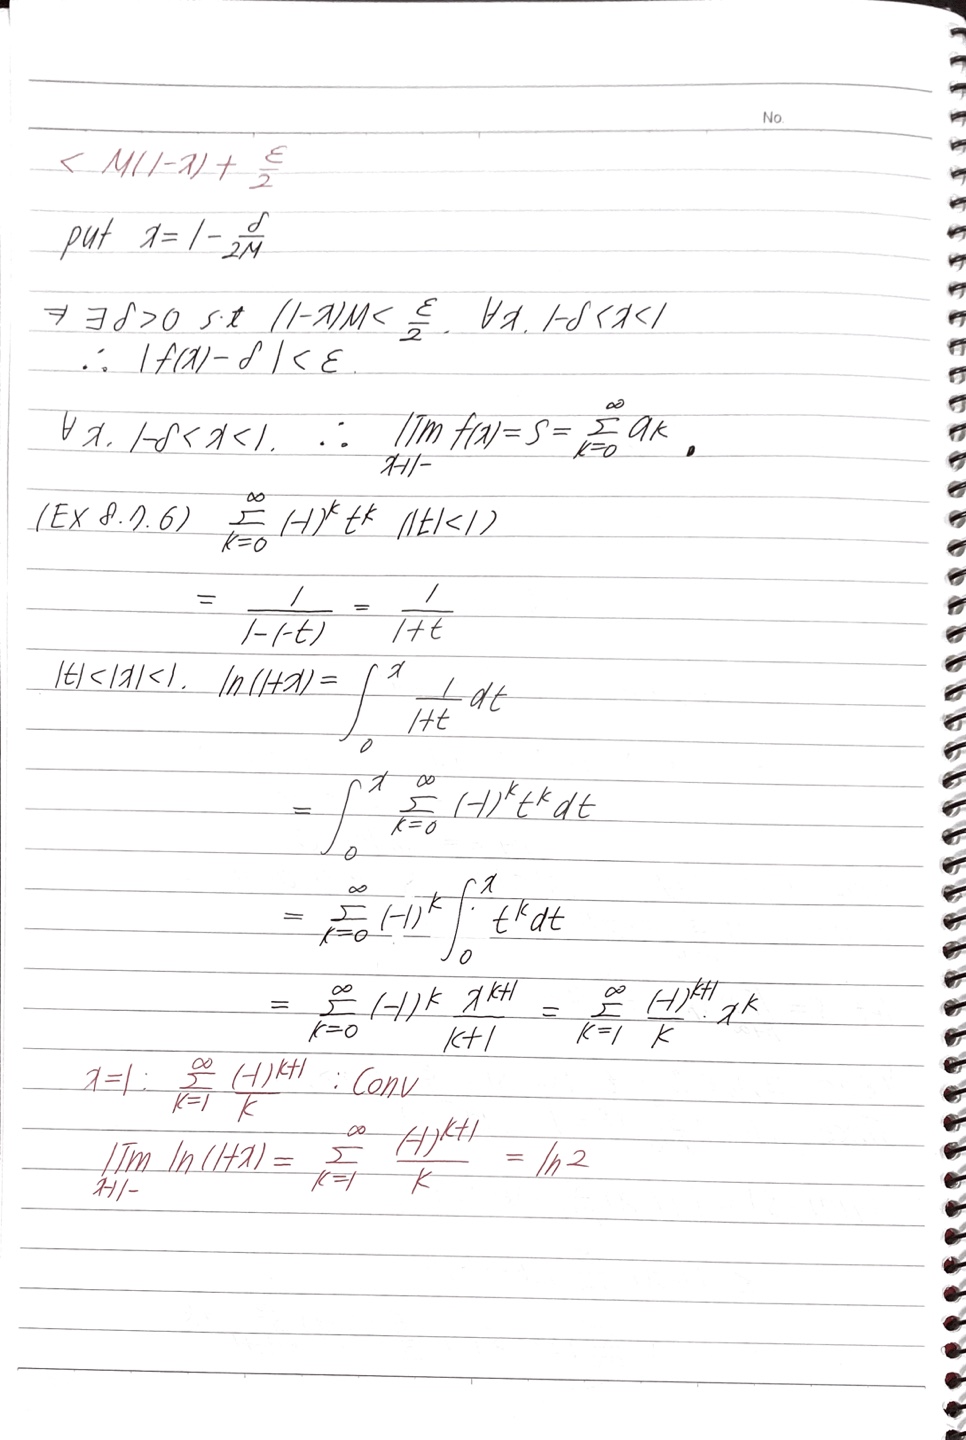 No
< M(1-x) + ε/2
put x = 1 - δ/2M
⇒ ∃ δ > 0 s.t (1-x)M < ε/2. ∀x. 1-δ < x < 1
∴ |f(x) - δ| < ε.
∀x. 1-δ < x < 1. ∴ lim_{x→1-} f(x) = S = Σ_{k=0}^{∞} ak.
(EX 8.7.6) Σ_{k=0}^{∞} (-1)^k t^k (|t|<1)
= 1/(1-(-t)) = 1/(1+t)
|t|<|x|<1. ln(1+x) = ∫_0^x 1/(1+t) dt
= ∫_0^x Σ_{k=0}^{∞} (-1)^k t^k dt
= Σ_{k=0}^{∞} (-1)^k ∫_0^x t^k dt
= Σ_{k=0}^{∞} (-1)^k x^{k+1}/(k+1) = Σ_{k=1}^{∞} (-1)^{k+1}/k · x^k
x=1: Σ_{k=1}^{∞} (-1)^{k+1}/k : Conv
lim_{x→1-} ln(1+x) = Σ_{k=1}^{∞} (-1)^{k+1}/k = ln2